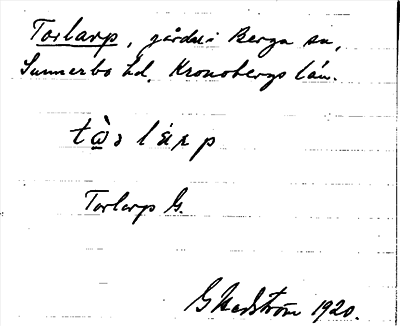 Torlarp, gårdar i Berga sn,
Sunnerbo hd, Kronobergs län.
Torlarp G.
G Hedström 1920.